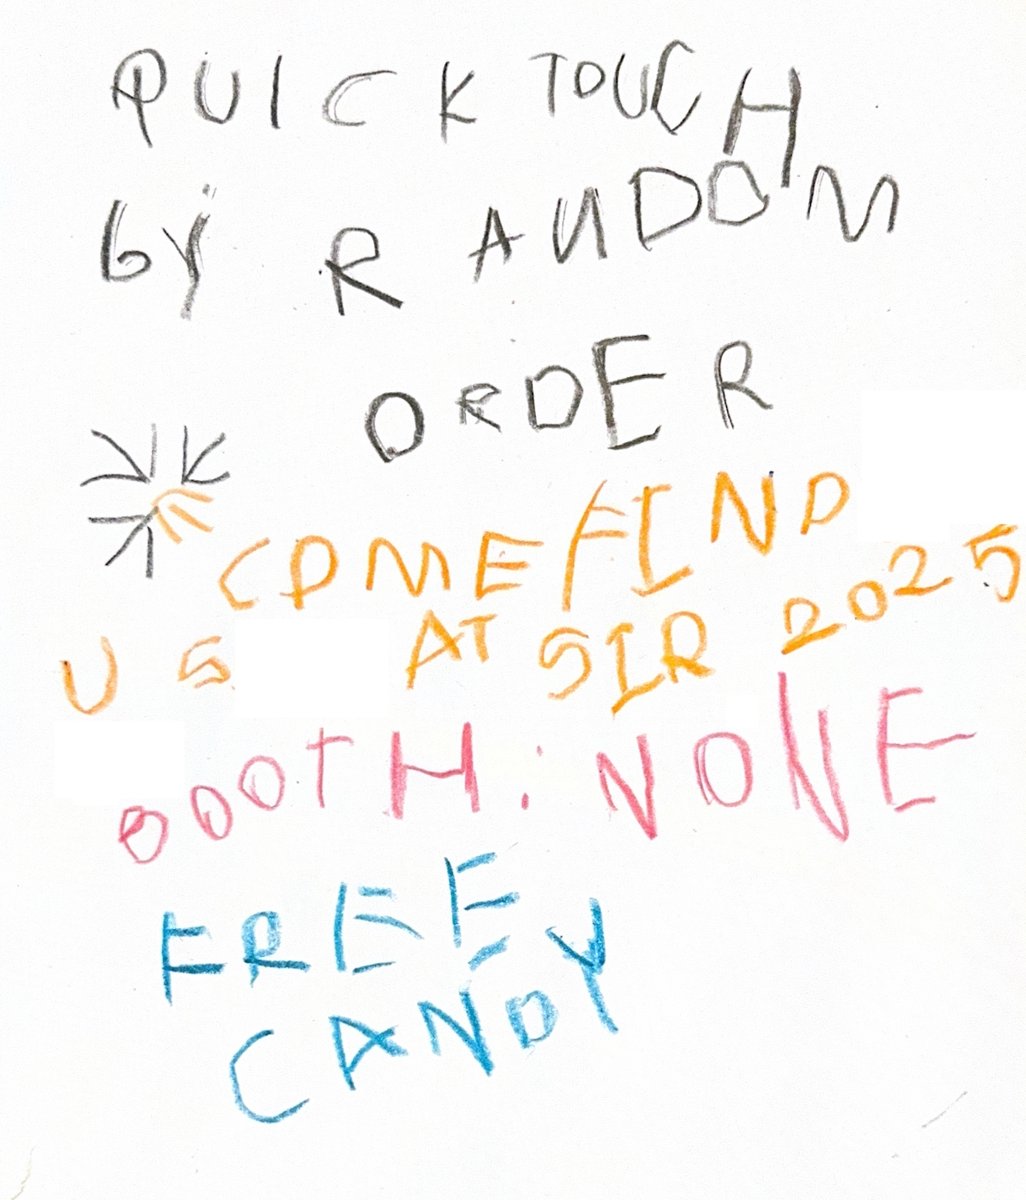 QUICK TOUCH
BY RANDOM
ORDER
COME FIND
US AT SIR 2025
BOOTH: NONE
FREE
CANDY